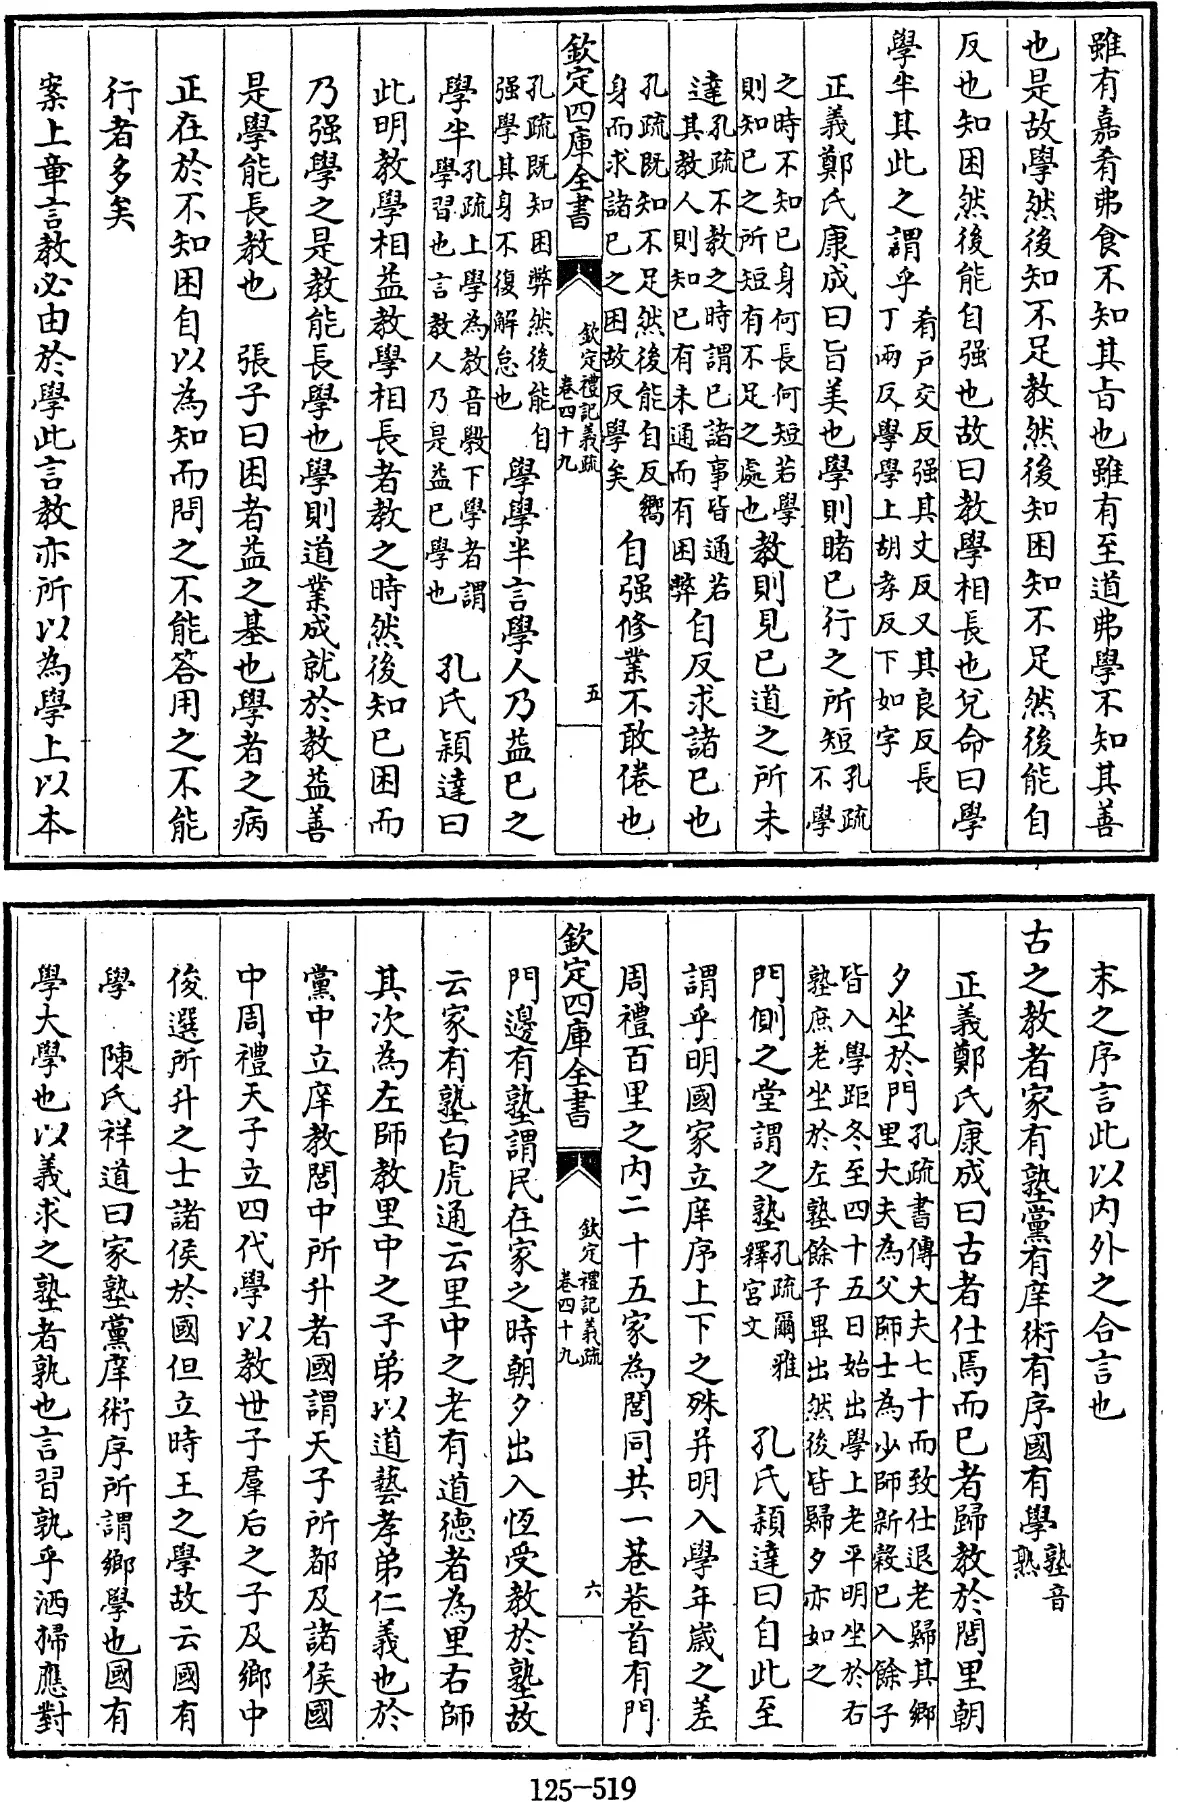 雖有嘉肴弗食不知其旨也雖有至道弗學不知其善
也是故學然後知不足教然後知困知不足然後能自
反也知困然後能自强也故曰教學相長也兌命曰學
學半其此之謂乎肴戶交反强其丈反又其良反長
丁兩反學學上胡孝反下如字
正義鄭氏康成曰旨美也學則睹已行之所短孔疏
不學
之時不知已身何長何短若學
則知已之所短有不足之處也教則見已道之所未
達孔疏不教之時謂已諸事皆通若
其教人則知已有未通而有困弊自反求諸已也
孔疏既知不足然後能自反嚮
身而求諸已之困故反學矣自强修業不敢倦也
欽定四庫全書
欽定禮記義疏
卷四十九
五
孔疏既知困弊然後能自
强學其身不復解怠也學學半言學人乃益已之
學半孔疏上學為教音斆下學者謂
學習也言教人乃是益已學也孔氏穎達曰
此明教學相益教學相長者教之時然後知已困而
乃强學之是教能長學也學則道業成就於教益善
是學能長教也 張子曰困者益之基也學者之病
正在於不知困自以為知而問之不能答用之不能
行者多矣
案上章言教必由於學此言教亦所以為學上以本
末之序言此以内外之合言也
古之教者家有塾黨有庠術有序國有學塾音
熟
正義鄭氏康成曰古者仕焉而已者歸教於閭里朝
夕坐於門孔疏書傳大夫七十而致仕退老歸其鄉
里大夫為父師士為少師新穀已入餘子
皆入學距冬至四十五日始出學上老平明坐於右
塾庶老坐於左塾餘子畢出然後皆歸夕亦如之
門側之堂謂之塾孔疏爾雅
釋宫文孔氏穎達曰自此至
謂乎明國家立庠序上下之殊并明入學年歲之差
周禮百里之内二十五家為閭同共一巷巷首有門
欽定四庫全書
欽定禮記義疏
卷四十九
六
門邊有塾謂民在家之時朝夕出入恆受教於塾故
云家有塾白虎通云里中之老有道德者為里右師
其次為左師教里中之子弟以道藝孝弟仁義也於
黨中立庠教閭中所升者國謂天子所都及諸侯國
中周禮天子立四代學以教世子羣后之子及鄉中
俊選所升之士諸侯於國但立時王之學故云國有
學 陳氏祥道曰家塾黨庠術序所謂鄉學也國有
學大學也以義求之塾者孰也言習孰乎洒掃應對
125-519